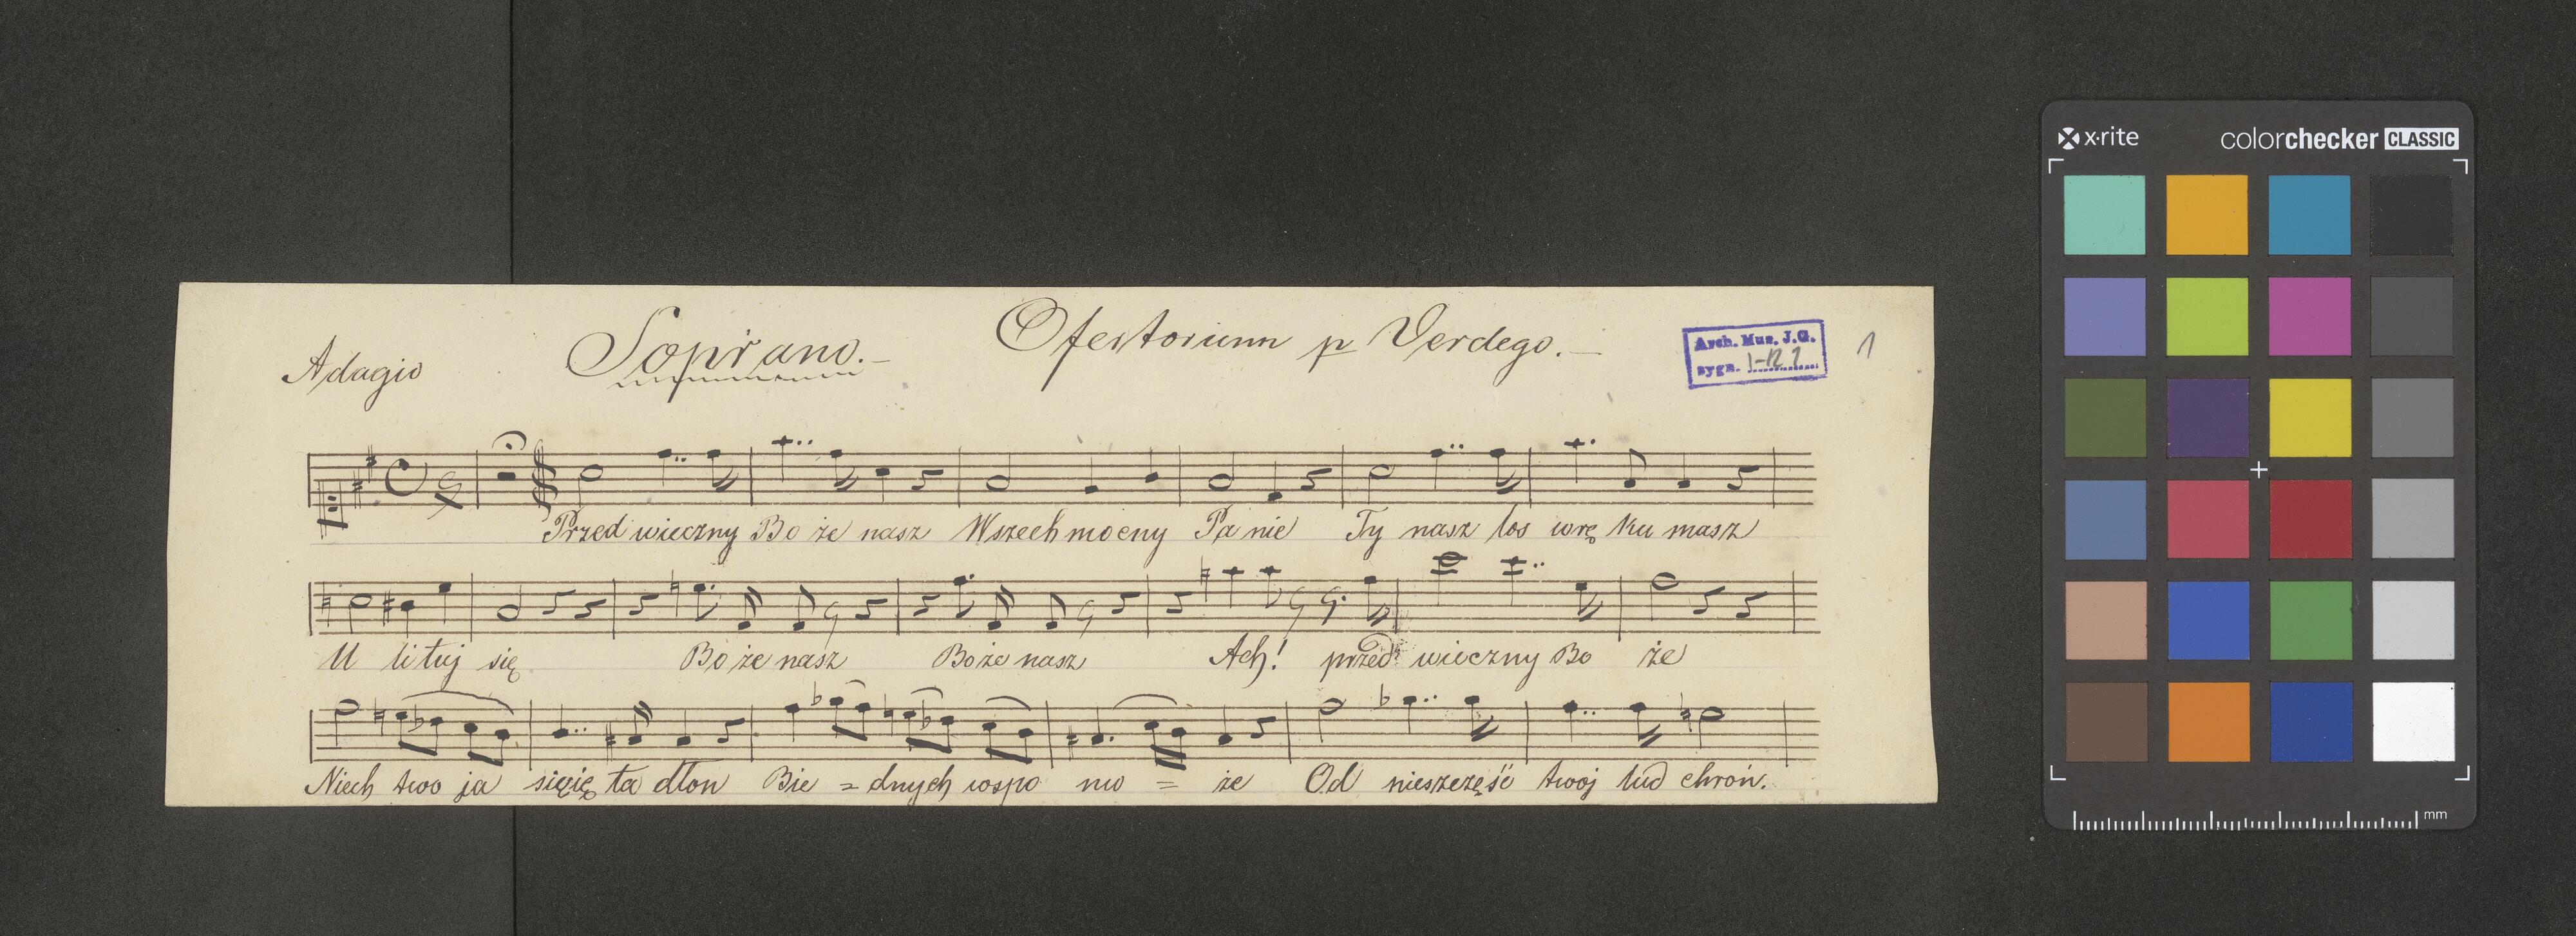 Adagio Soprano.— Ofertorium p Verdego.—
Arch. Muz. J.G.
sygn. I-12 1
Przed wieczny Bo że nasz Wszech mocny Pa nie Ty nasz los wrę ku masz
U li tuj się Bo że nasz Boże nasz Ach! przed wieczny Bo że
Niech two ja święta dłon Bie = dnych wspo mo = że Od nieszczęść twoj lud chroń.
x·rite colorchecker CLASSIC
mm